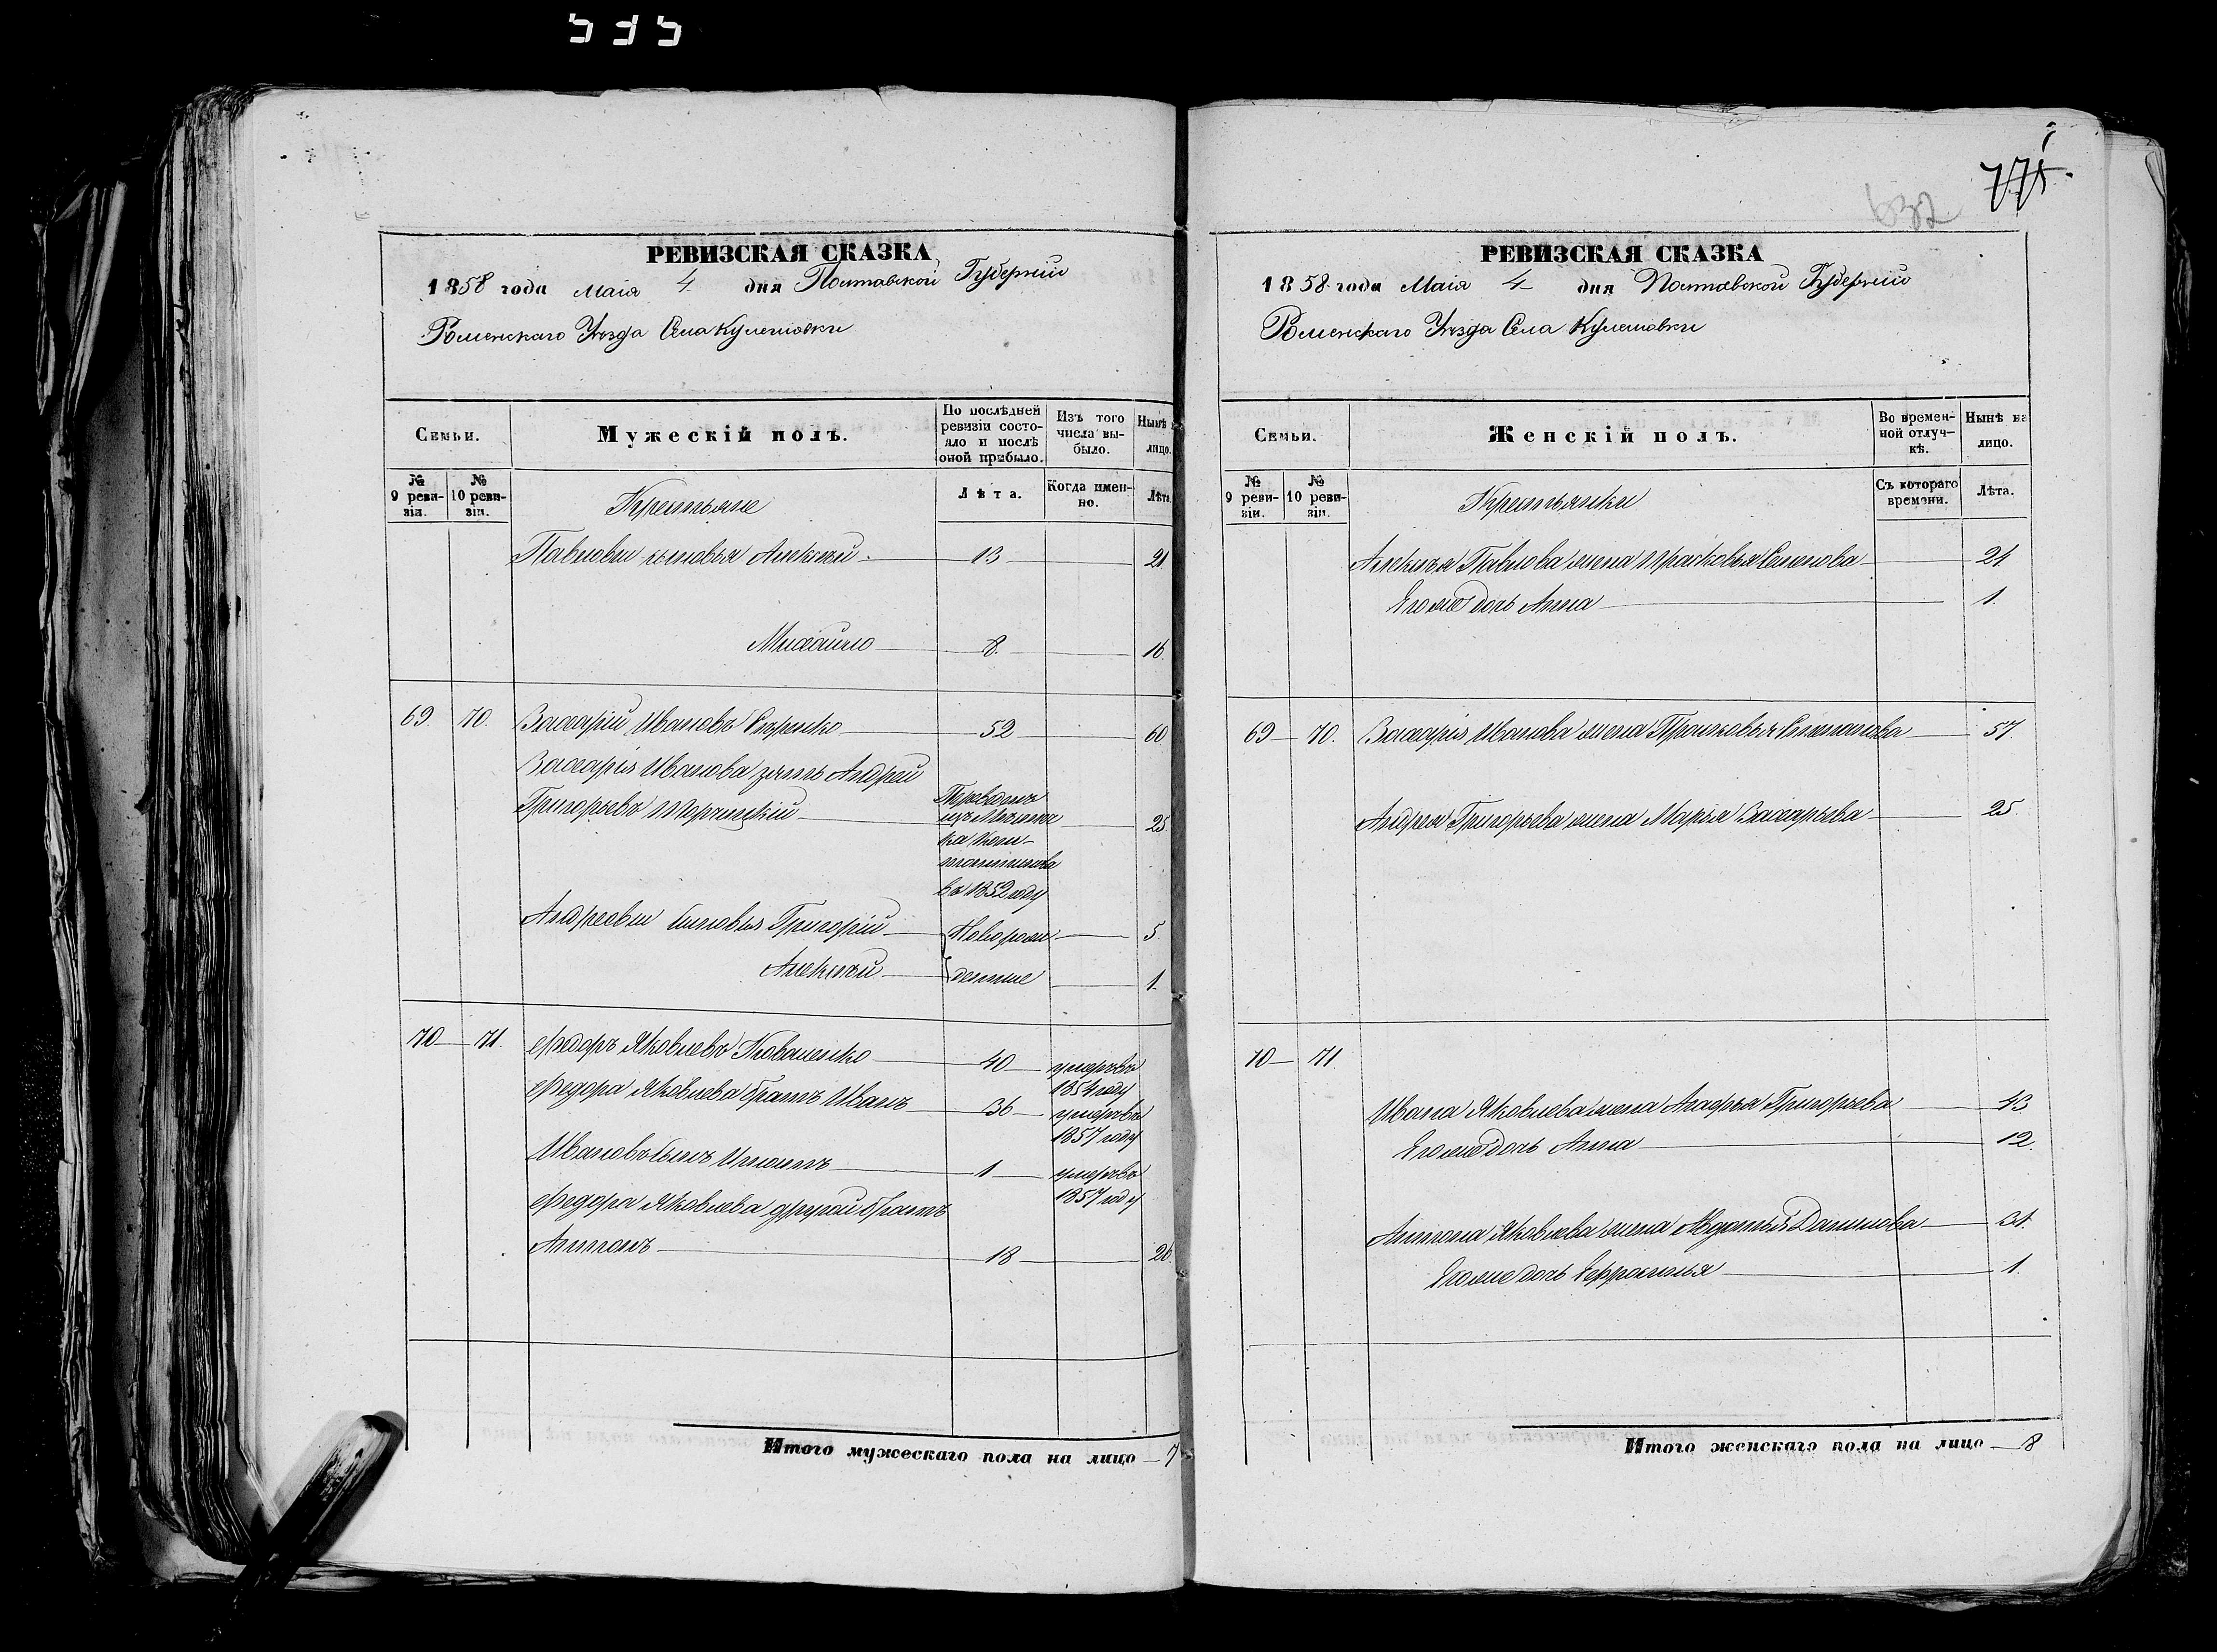 535
РЕВИЗСКАЯ СКАЗКА
1858 года Маія 4 дня Полтавской Губерніи
Роменскаго Уезда Села Кулешовки
Семьи.
Мужескій полъ.
По послѣдней ревизіи состояло и послѣ оной прибыло.
Изъ того числа выбыло.
Нынѣ
лицо.
№ 9 ревизіи.
№ 10 ревизіи.
Крестьяне
Лѣта.
Когда именно.
Лѣта
Павловы сыновья Алексей 13 21
Михайло 8 16
69 70. Захарій Ивановъ 52 60
Захарія Иванова зять Андрей
Григорьевъ 25
Переведенъ
въ 1852 году
Андреевы сыновья Григорій Новорож- 5
Алексей денные 1
70 71. Федоръ Яковлевъ Коваленко 40 умеръ въ 1854 году
Федора Яковлева братъ Иванъ 36 умеръ въ 1857 году
Ивановъ сынъ 1 умеръ въ 1857 году
Федора Яковлева другой братъ
Антонъ 18 26
Итого мужескаго пола на лицо 7
775
632
РЕВИЗСКАЯ СКАЗКА
1858 года Маія 4 дня Полтавской Губерніи
Роменскаго Уезда Села Кулешовки
Семьи.
Женскій полъ.
Во временной отлучкѣ.
Нынѣ на лицо.
№ 9 ревизіи.
№ 10 ревизіи.
Крестьянки
Съ котораго времени.
Лѣта.
Алексея Павлова жена Прасковья Семенова 21
Его же дочь Анна 1.
69 70. Захарія Иванова жена Прасковья 57
Андрея Григорьева жена Марья Захарьева 25
70 71
Ивана Яковлева жена Агафья Григорьева 43
Его же дочь Анна 12
Антона Яковлева жена Авдотья Данилова
Его же дочь Ефросинья 1.
Итого женскаго пола на лицо 8